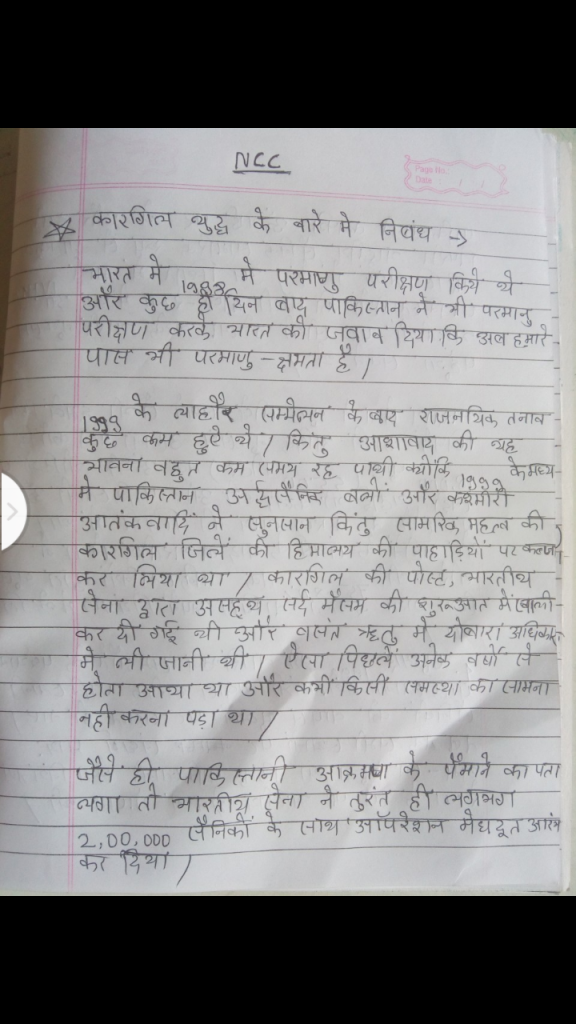 NCC
Page No.
Date
कारगिल युद्ध के बारे मे निबंध →
भारत मे 1998 मे परमाणु परीक्षण किये थे
और कुछ ही दिन बाद पाकिस्तान ने भी परमानु
परीक्षण करके भारत को जवाब दिया कि अब हमारे
पास भी परमाणु - क्षमता है /
1999 के लाहौर सम्मेलन के बाद राजनयिक तनाव
कुछ कम हुऐ थे / किंतु आशावाद की यह
भावना बहुत कम समय रह पायी क्योंकि 1999 के मध्य
मे पाकिस्तान अर्द्धसैनिक बलों और कश्मीरी
आतंकवादि ने सुनसान किंतु सामरिक महत्व की
कारगिल जिलें की हिमालय की पाहाडियों पर कब्जा
कर लिया था / कारगिल की पोस्ट, भारतीय
सेना द्वारा असहय सर्द मौसम की शुरूआत मे खाली
कर दी गई थी और वसंत ऋतु मे दोबारा अधिकार
मे ली जानी थी / ऐसा पिछलें अनेक वर्षो से
होता आया था और कभी किसी समस्या का सामना
नही करना पड़ा था /
जैसे ही पाकिस्तानी आक्रमण के पैमाने का पता
लगा तो भारतीय सेना ने तुरंत ही लगभग
2,00,000 सैनिकों के साथ ऑपरेशन मेघदूत आरंभ
कर दिया /